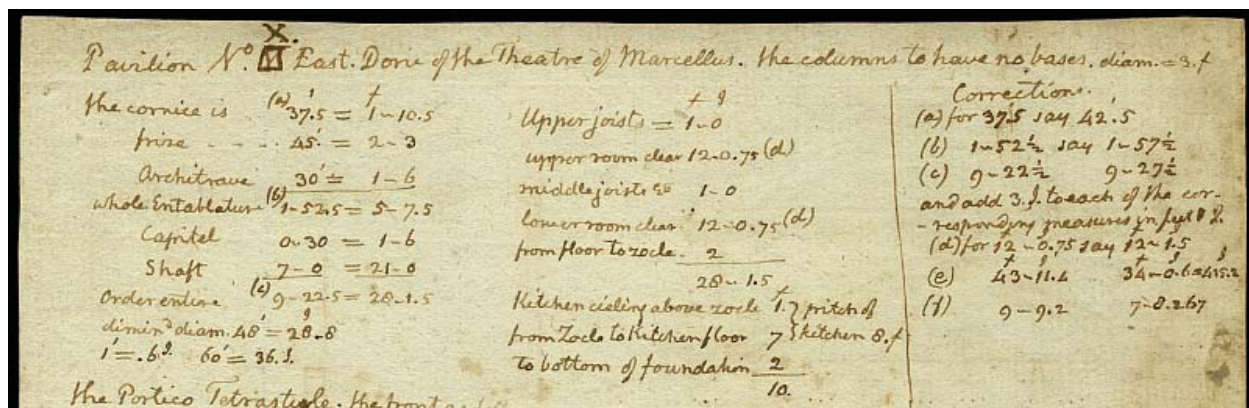 X.
Pavilion No. East. Doric of the Theatre of Marcellus. the columns to have no bases. diam. = 3.f
the cornice is (a) 37.5 = 1-10.5
frize - - - . 45' = 2-3
Architrave 30' = 1-6
whole Entablature (b) 1-52.5 = 5-7.5
Capitel 0-30 = 1-6
Shaft 7-0 = 21-0
Order entire (c) 9-22.5 = 28-1.5
dimind diam. 48' = 28.8
1' = .6 I. 60' = 36.I.
Upper joists = 1-0
upper room clear 12-0.75 (d)
middle joists &c 1-0
lower room clear 12-0.75 (d)
from floor to zocle. 2
28-1.5
Kitchen cieling above zocle 1. } pitch of
from Zocle to Kitchen floor 7 } kitchen 8.f
to bottom of foundation 2
10.
Corrections.
(a) for 37.5 say 42.5
(b) 1-52½ say 1-57½
(c) 9-22½ 9-27½
and add 3.I. to each of the cor-
-responding measures in feet & I.
(d) for 12-0.75 say 12-1.5
(e) 43-11.4 34-0.6=
(f) 9-9.2 7-8.267
the Portico Tetrastyle. the front